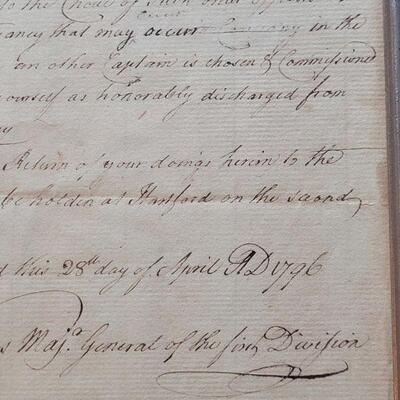 to the Choice of Such other officer
ancy that may occur in the
an other Captain is chosen & Commissioned
yourself as honorably discharged from
Return of your doings herein to the
be holden at Hartford on the second
this 28th day of April AD 1796
Majr. General of the first Division